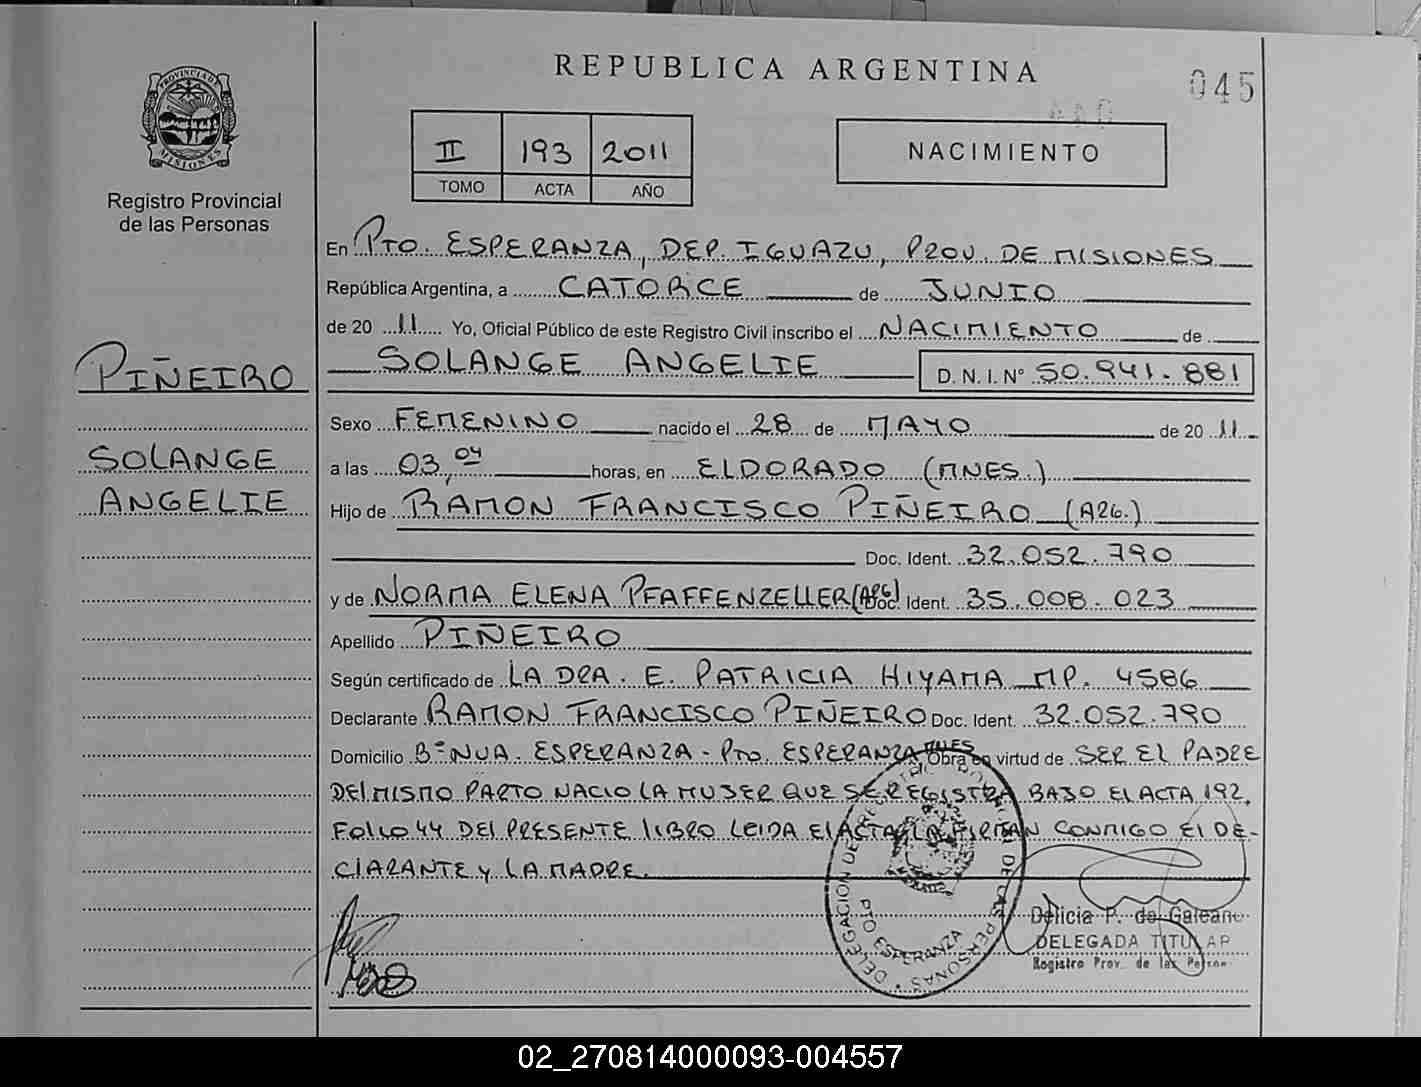 REPUBLICA ARGENTINA
045
PROVINCIA DE
MISIONES
Registro Provincial
de las Personas
II 193 2011
TOMO ACTA AÑO
NACIMIENTO
En PTO. ESPERANZA, DEP. IGUAZU, PROV. DE MISIONES
República Argentina, a CATORCE de JUNIO
de 20 11 Yo, Oficial Público de este Registro Civil inscribo el NACIMIENTO de
SOLANGE ANGELIE D.N.I. Nº 50.941.881
PIÑEIRO
Sexo FEMENINO nacido el 28 de MAYO de 20 11
SOLANGE
a las 03,04 horas, en ELDORADO (MNES.)
ANGELIE
Hijo de RAMON FRANCISCO PIÑEIRO (ARG.)
Doc. Ident. 32.052.790
y de NORMA ELENA PFAFFENZELLER (ARG) Doc. Ident. 35.008.023
Apellido PIÑEIRO
Según certificado de LA DRA. E. PATRICIA HIYAMA MP. 4586
Declarante RAMON FRANCISCO PIÑEIRO Doc. Ident. 32.052.790
Domicilio Bº NVA. ESPERANZA - PTO. ESPERANZA MNES Obra en virtud de SER EL PADRE
DEL MISMO PARTO NACIO LA MUJER QUE SE REGISTRA BAJO EL ACTA 192,
FOLIO 44 DEL PRESENTE LIBRO LEIDA EL ACTA, LA FIRMAN CONMIGO EL DE-
CLARANTE Y LA MADRE.
DELEGACION DE REGISTRO PROVINCIAL DE LAS PERSONAS
PTO ESPERANZA
Delicia P. de Galeano
DELEGADA TITULAR
Registro Prov. de las Person.
02_270814000093-004557